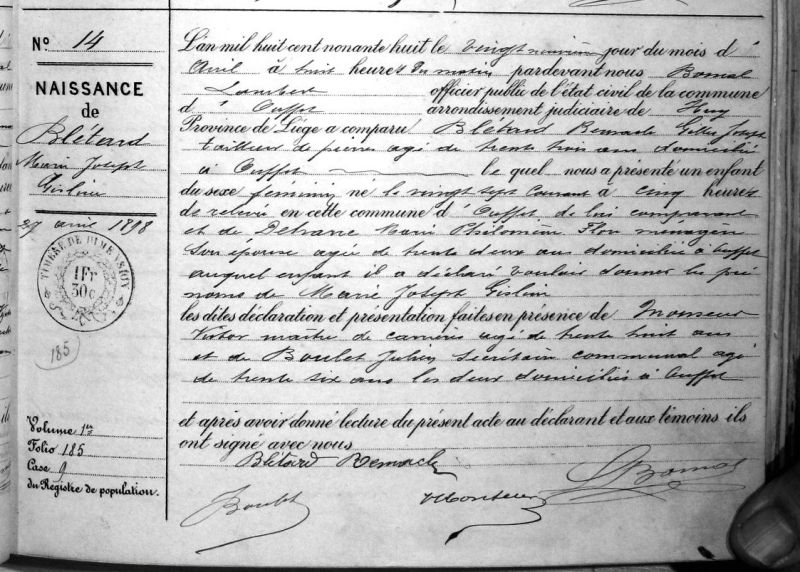 N° 14
NAISSANCE
de
Blétard
Marie Joseph
Gislin
27 avril 1898
TIMBRE DE DIMENSION
1 Fr
30 c
185
Volume 1er
Folio 185
Case 9
du Registre de population.
L'an mil huit cent nonante huit le vingt neuvième jour du mois d'
Avril à huit heures du matin pardevant nous Bomal
Lambert officier public de l'état civil de la commune
d' Ouffet arrondissement judiciaire de Huy
Province de Liége a comparu Blétard Remacle Gilles Joseph
tailleur de pierres agé de trente trois ans domicilié
à Ouffet le quel nous a présenté un enfant
du sexe féminin né le vingt sept Courant à cinq heures
de relevée en cette commune d' Ouffet de lui comparant
et de Marie Philomène Flore ménagère
son épouse agée de trente deux ans domiciliée à Ouffet
auquel enfant il a déclaré vouloir donner les pré
noms de Marie Joseph Gislin
les dites déclaration et présentation faites en présence de Monseur
Victor maître de carrières agé de trente huit ans
et de Boulet Julien secrétaire communal agé
de trente six ans les deux domiciliés à Ouffet
et après avoir donné lecture du présent acte au déclarant et aux témoins ils
ont signé avec nous
Blétard Remacle
Boulet VMonseur LBomal